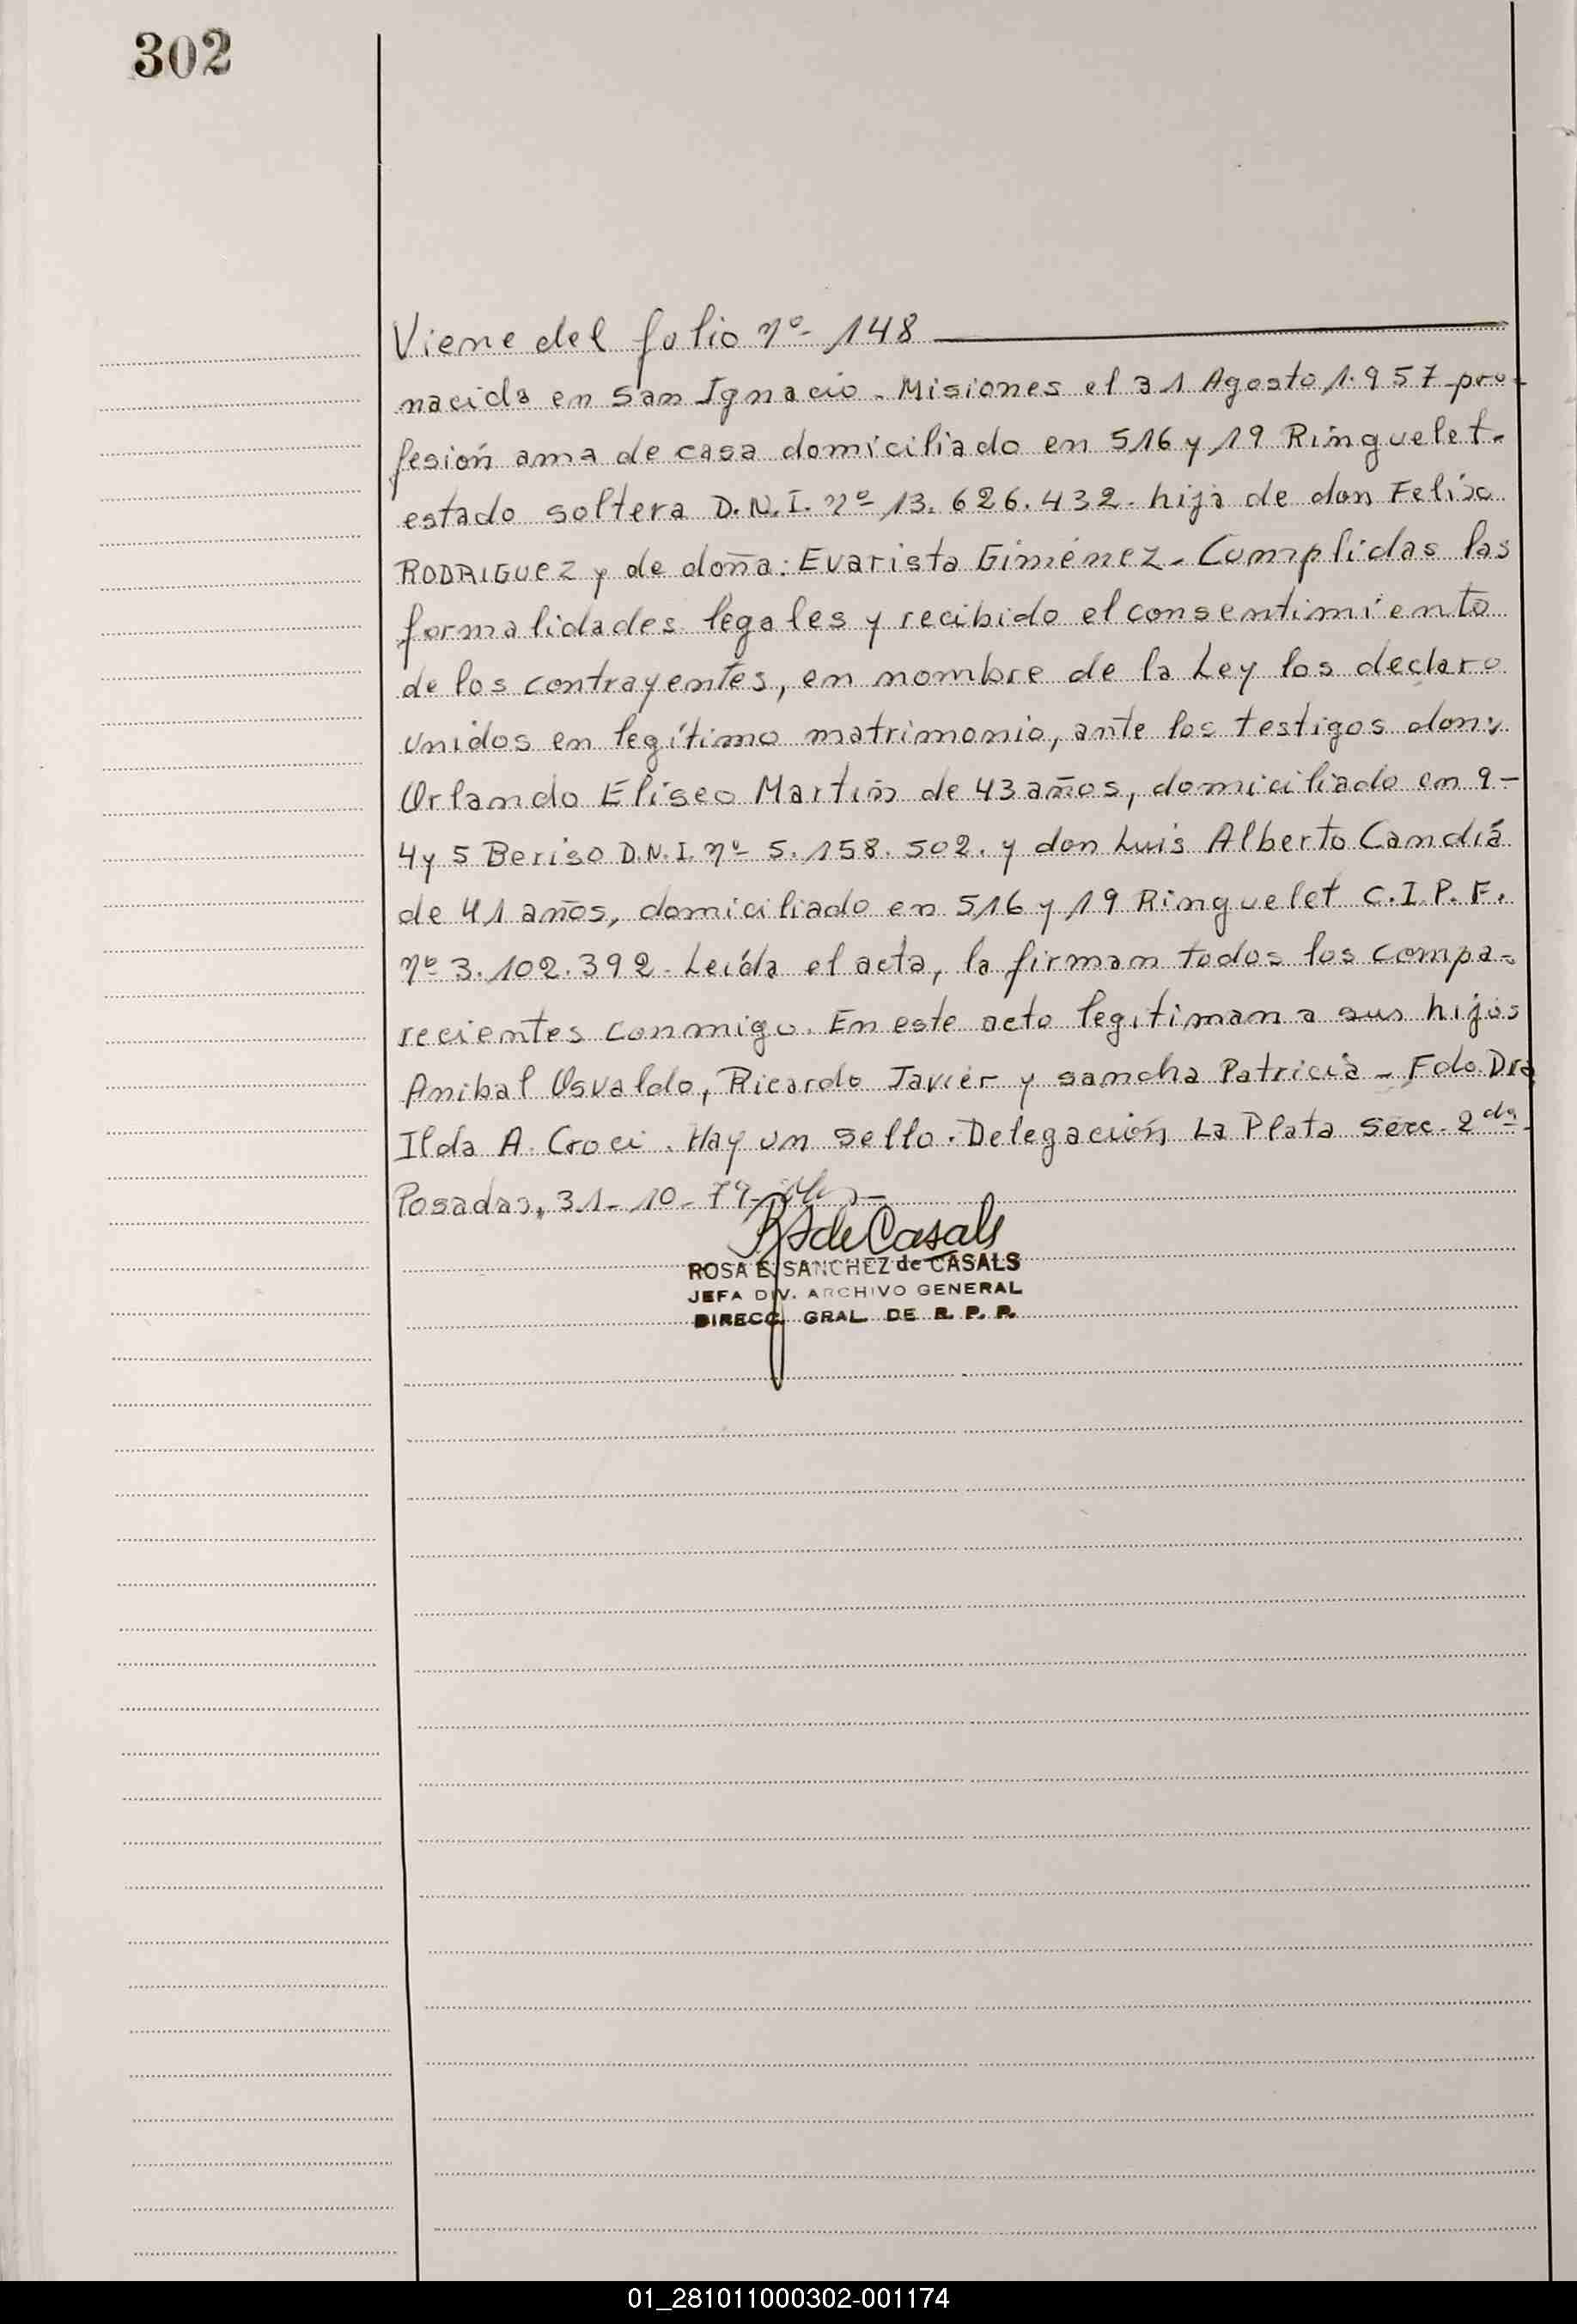 302
Viene del folio nº 148
nacida en San Ignacio - Misiones el 31 Agosto 1.957 - pro-
fesión ama de casa domiciliado en 516 y 19 Ringuelet.
estado soltera D.N.I. nº 13.626.432. hija de don Felixo
RODRIGUEZ y de doña: Evarista Giménez - Cumplidas las
formalidades legales y recibido el consentimiento
de los contrayentes, en nombre de la Ley los declaro
unidos en legítimo matrimonio, ante los testigos don:
Orlando Eliseo Martin de 43 años, domiciliado en 9-
4 y 5 Beriso D.N.I. nº 5.158.502. y don Luis Alberto Candia
de 41 años, domiciliado en 516 y 19 Ringuelet C.I.P.F.
nº 3.102.392. Leída el acta, la firman todos los compa-
recientes conmigo. En este acto legitiman a sus hijos
Anibal Osvaldo, Ricardo Javier y sancha Patricia - Fdo. Dra
Ilda A. Croci. Hay un sello. Delegación La Plata Secc. 2da.
Posadas, 31-10-79-
RS de Casals
ROSA E. SANCHEZ de CASALS
JEFA DIV. ARCHIVO GENERAL
DIRECC. GRAL. DE R. P. P.
01_281011000302-001174